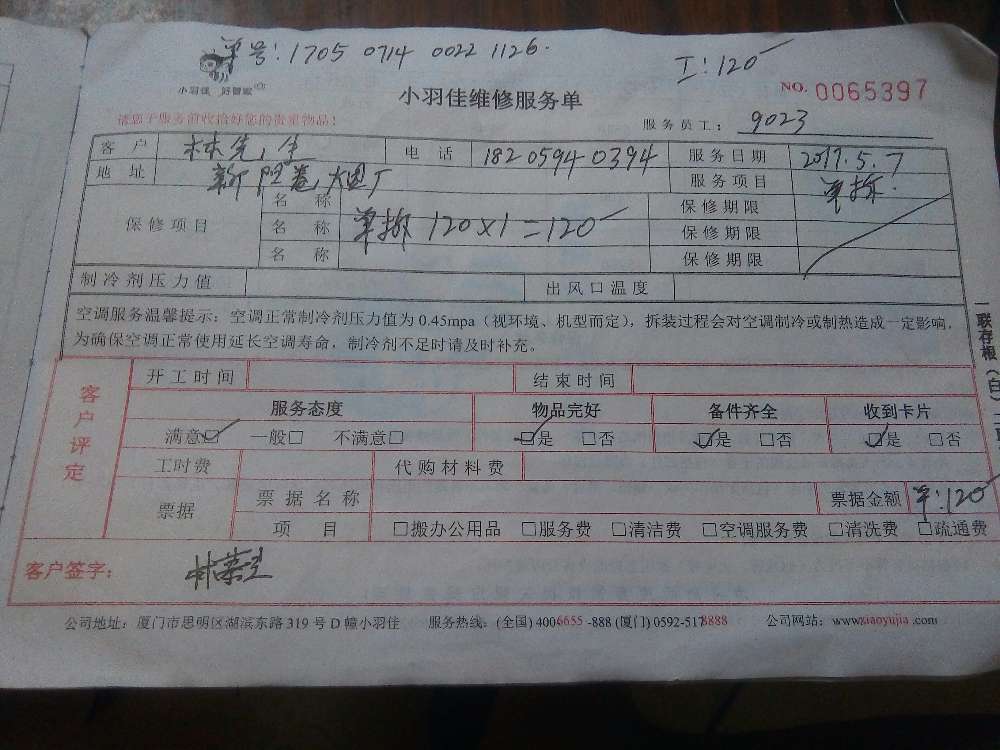 单号: 1705 0714 0022 1126.
工: 120
小羽佳 好管家
小羽佳维修服务单
NO. 0065397
请您于服务前收拾好您的贵重物品!
服务员工: 9023
客户 林先生 电话 18205940394 服务日期 2017.5.7
地址 新 服务项目 单拆.
保修项目 名称 保修期限
名称 单拆 120×1=120 保修期限
名称 保修期限
制冷剂压力值 出风口温度
空调服务温馨提示: 空调正常制冷剂压力值为 0.45mpa (视环境、机型而定), 拆装过程会对空调制冷或制热造成一定影响,
为确保空调正常使用延长空调寿命, 制冷剂不足时请及时补充。
一联存根(白)
客户评定
开工时间 结束时间
服务态度 物品完好 备件齐全 收到卡片
满意☑ 一般□ 不满意□ ☑是 □否 ☑是 □否 ☑是 □否
工时费 代购材料费
票据 票据名称 票据金额 ¥:120
项目 □搬办公用品 □服务费 □清洁费 □空调服务费 □清洗费 □疏通费
客户签字:
公司地址: 厦门市思明区湖滨东路 319 号 D 幢小羽佳 服务热线: (全国) 4006655-888 (厦门) 0592-5178888 公司网站: www.xiaoyujia.com